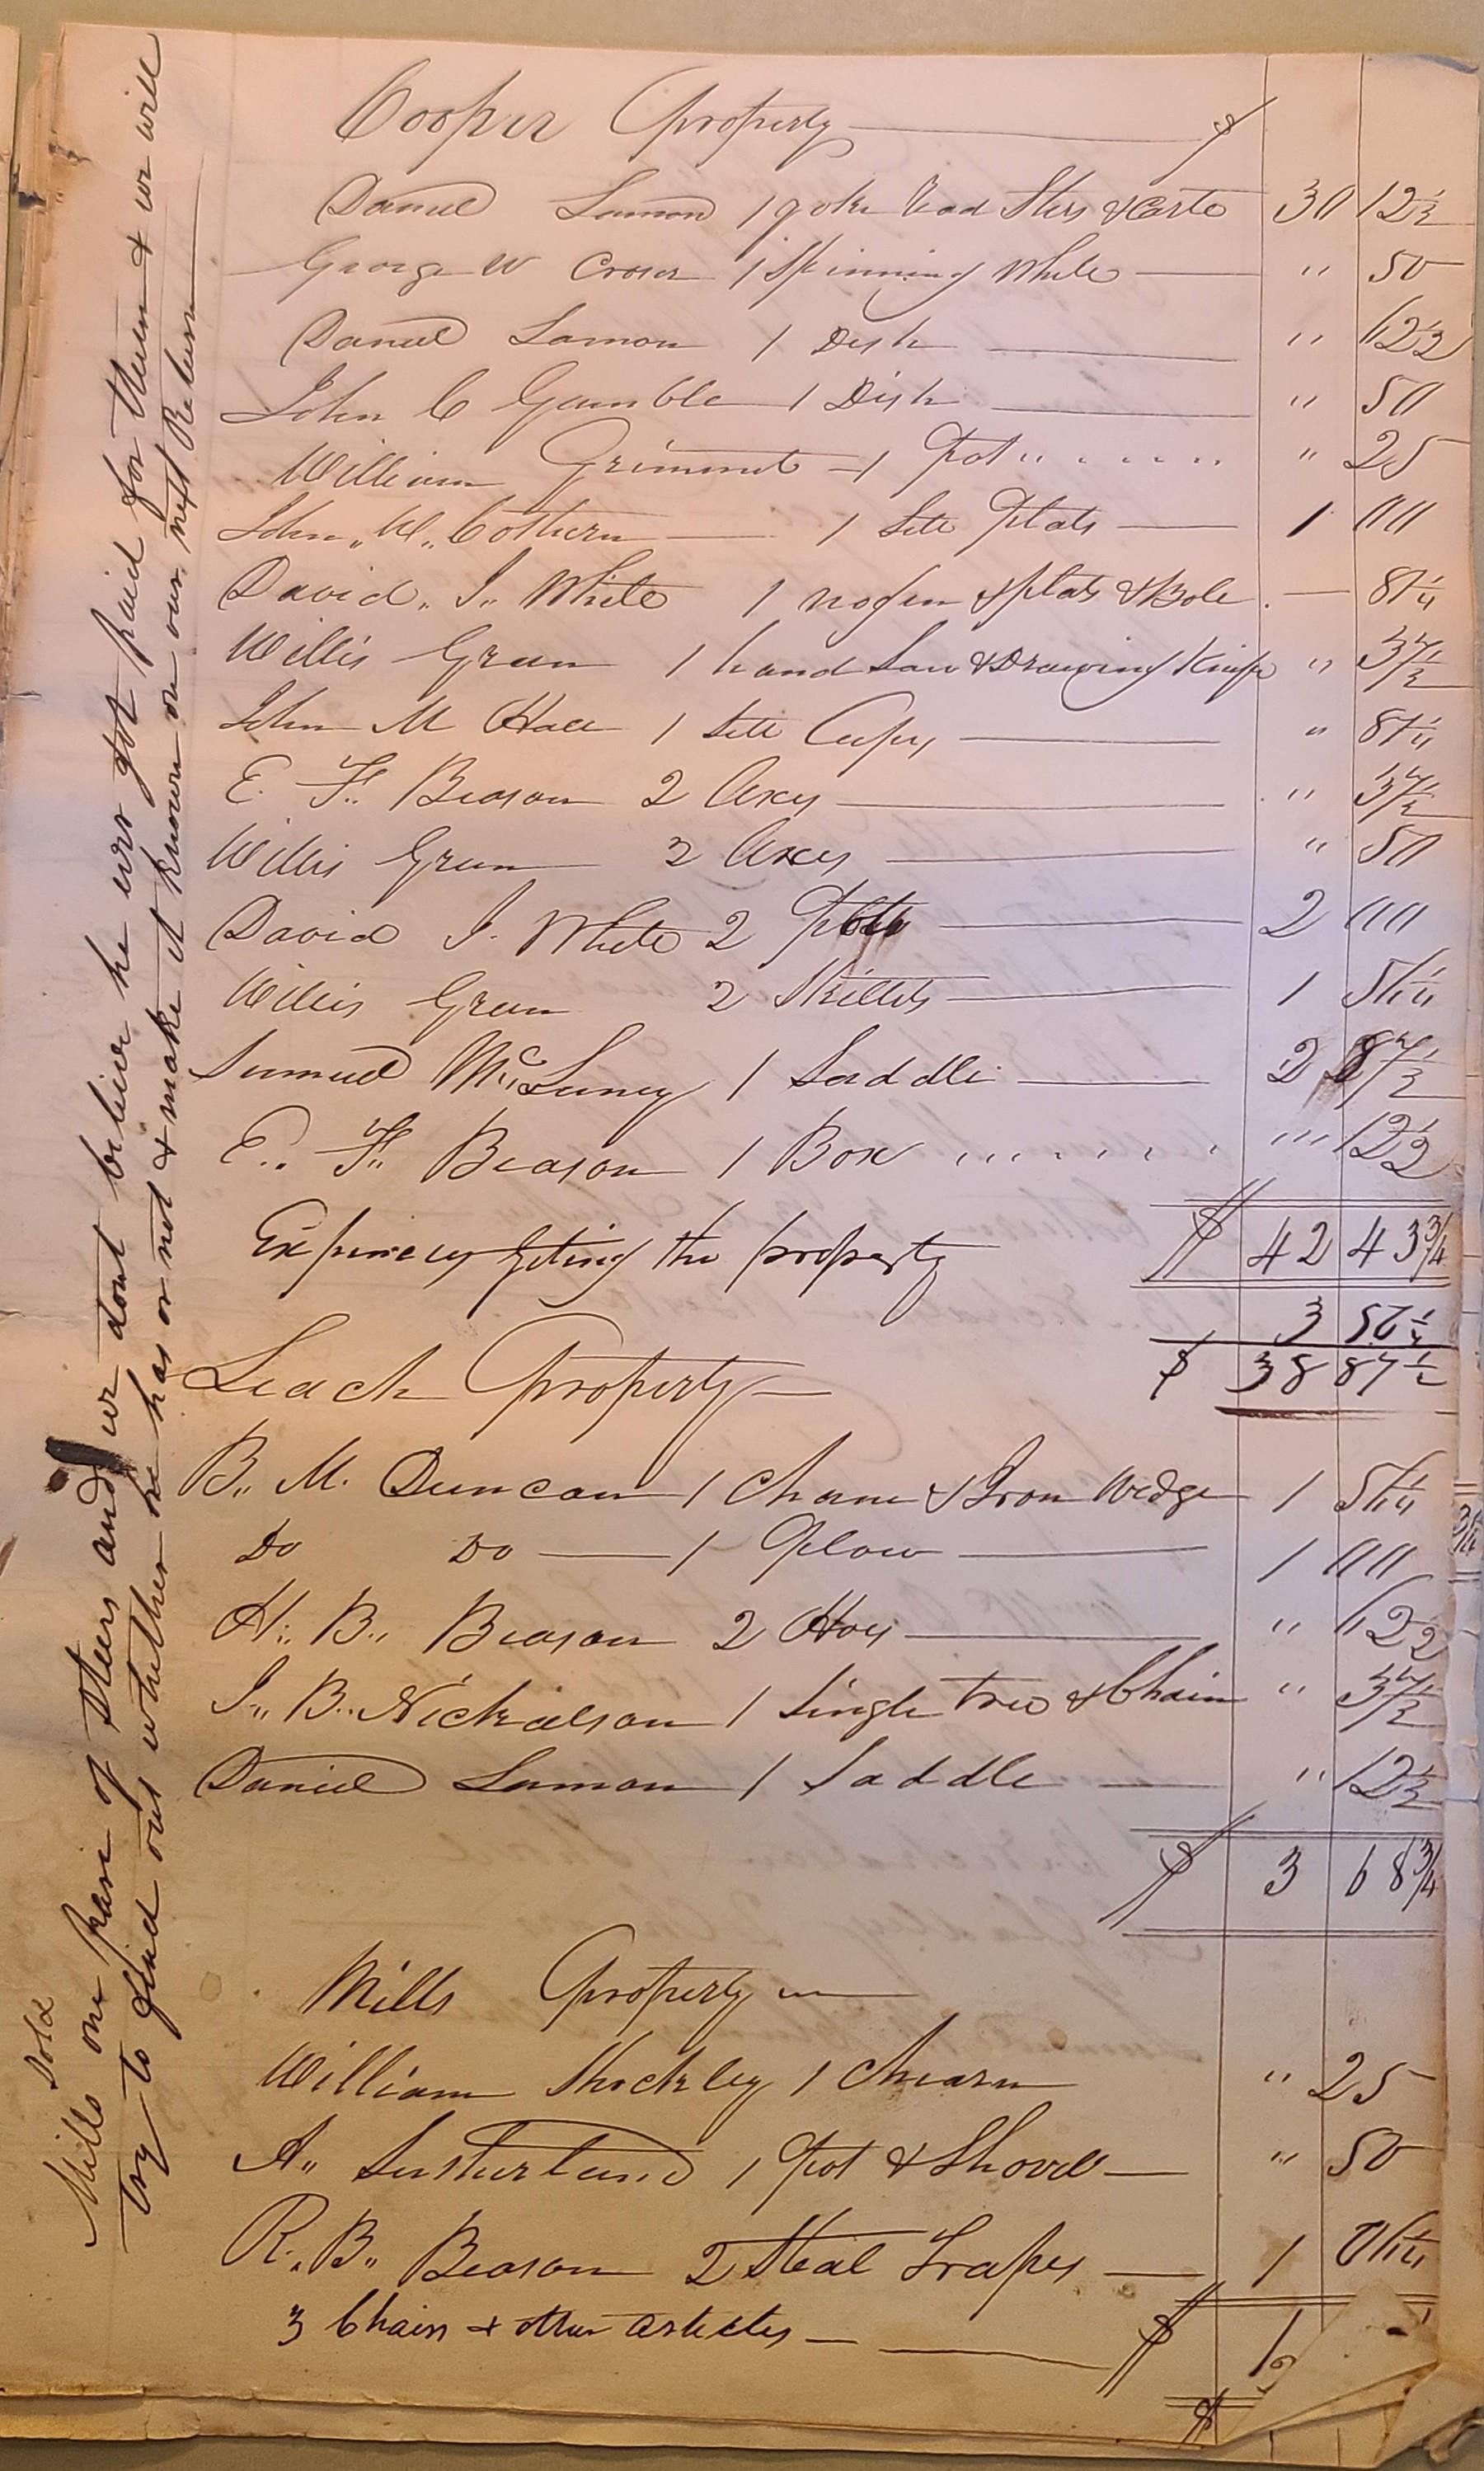 Cooper Property $
Daniel Lamon 1 yoke Read Steers & Carte 30 12½
George W Croser 1 Spinning While " 50
Daniel Lamon 1 Dish " 12½
John C Gamble 1 Dish " 50
William Grimmet 1 Pot " 25
John W. Cothern 1 Sett Plats 1 00
David J. White 1 nogen & plats & Bole — 81¼
Willis Green 1 hand Saw & Drawing Knife " 37½
John M Hall 1 Sett Cups " 81¼
E. F. Beason 2 Axes " 37½
Willis Green 2 Axes " 50
David J. White 2 Pots 2 00
Willis Green 2 Skillets 1 56¼
Samuel McLuney 1 Saddle 2 87½
E. F. Beason 1 Box " 12½
$ 42 43¾
Expences geting the property 3 56¼
$ 38 87½
Leach Property
B. M. Duncan 1 Chane & Iron Wedge 1 56¼
Do Do 1 Plow 1 00
H. B. Beason 2 Hoes " 12½
J. B. Nickalson 1 Single Tree & Chain " 37½
Daniel Lamon 1 Saddle " 12½
$ 3 68¾
Mills Property
William Shockley 1 Chearn " 25
A. Sutherland 1 Pot & Shovell " 50
R. B. Beason 2 Steal Traps 1 06¼
3 Chairs & other articles $ 1
$
Sold
Mills one pare of Steers and we dont believe he ever got paid for them & we will
try to find out whether he has or not & make it known on our next Return